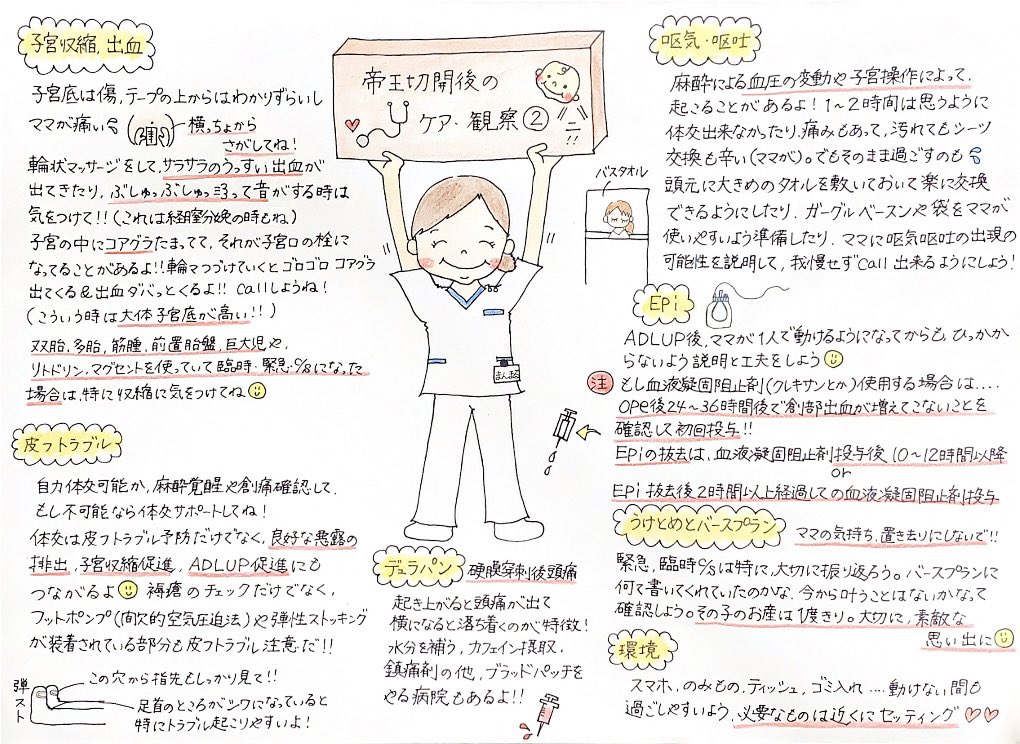 帝王切開後の
ケア・観察②
子宮収縮,出血
子宮底は傷,テープの上からはわかりずらいし
ママが痛い
横っちょから
さがしてね!
輪状マッサージをして,サラサラのうっすい出血が
出てきたり,ぶしゅっぶしゅっって音がする時は
気をつけて!!(これは経腟分娩の時もね)
子宮の中にコアグラたまってて,それが子宮口の栓に
なってることがあるよ!!輪マつづけていくとゴロゴロコアグラ
出てくる&出血ダバっとくるよ!! callしようね!
(こういう時は大体子宮底が高い!!)
双胎,多胎,筋腫,前置胎盤,巨大児や,
リトドリン,マグセントを使っていて臨時・緊急C/Sになった
場合は,特に収縮に気をつけてね
皮フトラブル
自力体交可能か,麻酔覚醒や創痛確認して,
もし不可能なら体交サポートしてね!
体交は皮フトラブル予防だけでなく,良好な悪露の
排出,子宮収縮促進,ADLUP促進にも
つながるよ 褥瘡のチェックだけでなく,
フットポンプ(間欠的空気圧迫法)や弾性ストッキング
が装着されている部分も皮フトラブル注意だ!!
弾スト
この穴から指先もしっかり見て!!
足首のところがシワになっていると
特にトラブル起こりやすいよ!
まんまる
デュラパン 硬膜穿刺後頭痛
起き上がると頭痛が出て
横になると落ち着くのが特徴!
水分を補う,カフェイン摂取,
鎮痛剤の他,ブラッドパッチを
やる病院もあるよ!!
嘔気・嘔吐
麻酔による血圧の変動や子宮操作によって,
起こることがあるよ!1〜2時間は思うように
体交出来なかったり,痛みもあって,汚れてもシーツ
交換も辛い(ママが)。でもそのまま過ごすのも
頭元に大きめのタオルを敷いておいて楽に交換
できるようにしたり,ガーグルベースンや袋をママが
使いやすいよう準備したり,ママに嘔気嘔吐の出現の
可能性を説明して,我慢せずcall出来るようにしよう!
バスタオル
EPi
ADLUP後,ママが1人で動けるようになってからも,ひっかか
らないよう説明と工夫をしよう
注 もし血液凝固阻止剤(クレキサンとか)使用する場合は....
OPE後24〜36時間後で創部出血が増えてこないことを
確認して初回投与!!
EPiの抜去は,血液凝固阻止剤投与後10〜12時間以降
or
EPi抜去後2時間以上経過しての血液凝固阻止剤投与
うけとめとバースプラン ママの気持ち,置き去りにしないで!!
緊急,臨時C/Sは特に,大切に振り返ろう。バースプランに
何て書いてくれていたのかな,今から叶うことはないかなって
確認しよう。その子のお産は1度きり。大切に,素敵な
思い出に
環境
スマホ,のみもの,ティッシュ,ゴミ入れ....動けない間も
過ごしやすいよう,必要なものは近くにセッティング